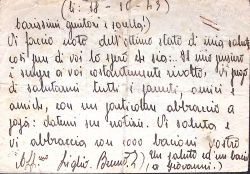 li: 18-10-43
Carissimi genitori e sorella!)
Vi faccio noto dell'ottimo stato di mia salute
così pure di voi lo spero che sia:. Il mio pensiero
è sempre a voi costantemente rivolto. Vi prego
di salutarmi tutti i parenti, amici e
amiche, con un particolar abbraccio a
datemi sue notizie. Vi saluta e
vi abbraccia con 1000 bacioni vostro
Aff.mo figlio
Un saluto ed un bacio
a Giovanni!)